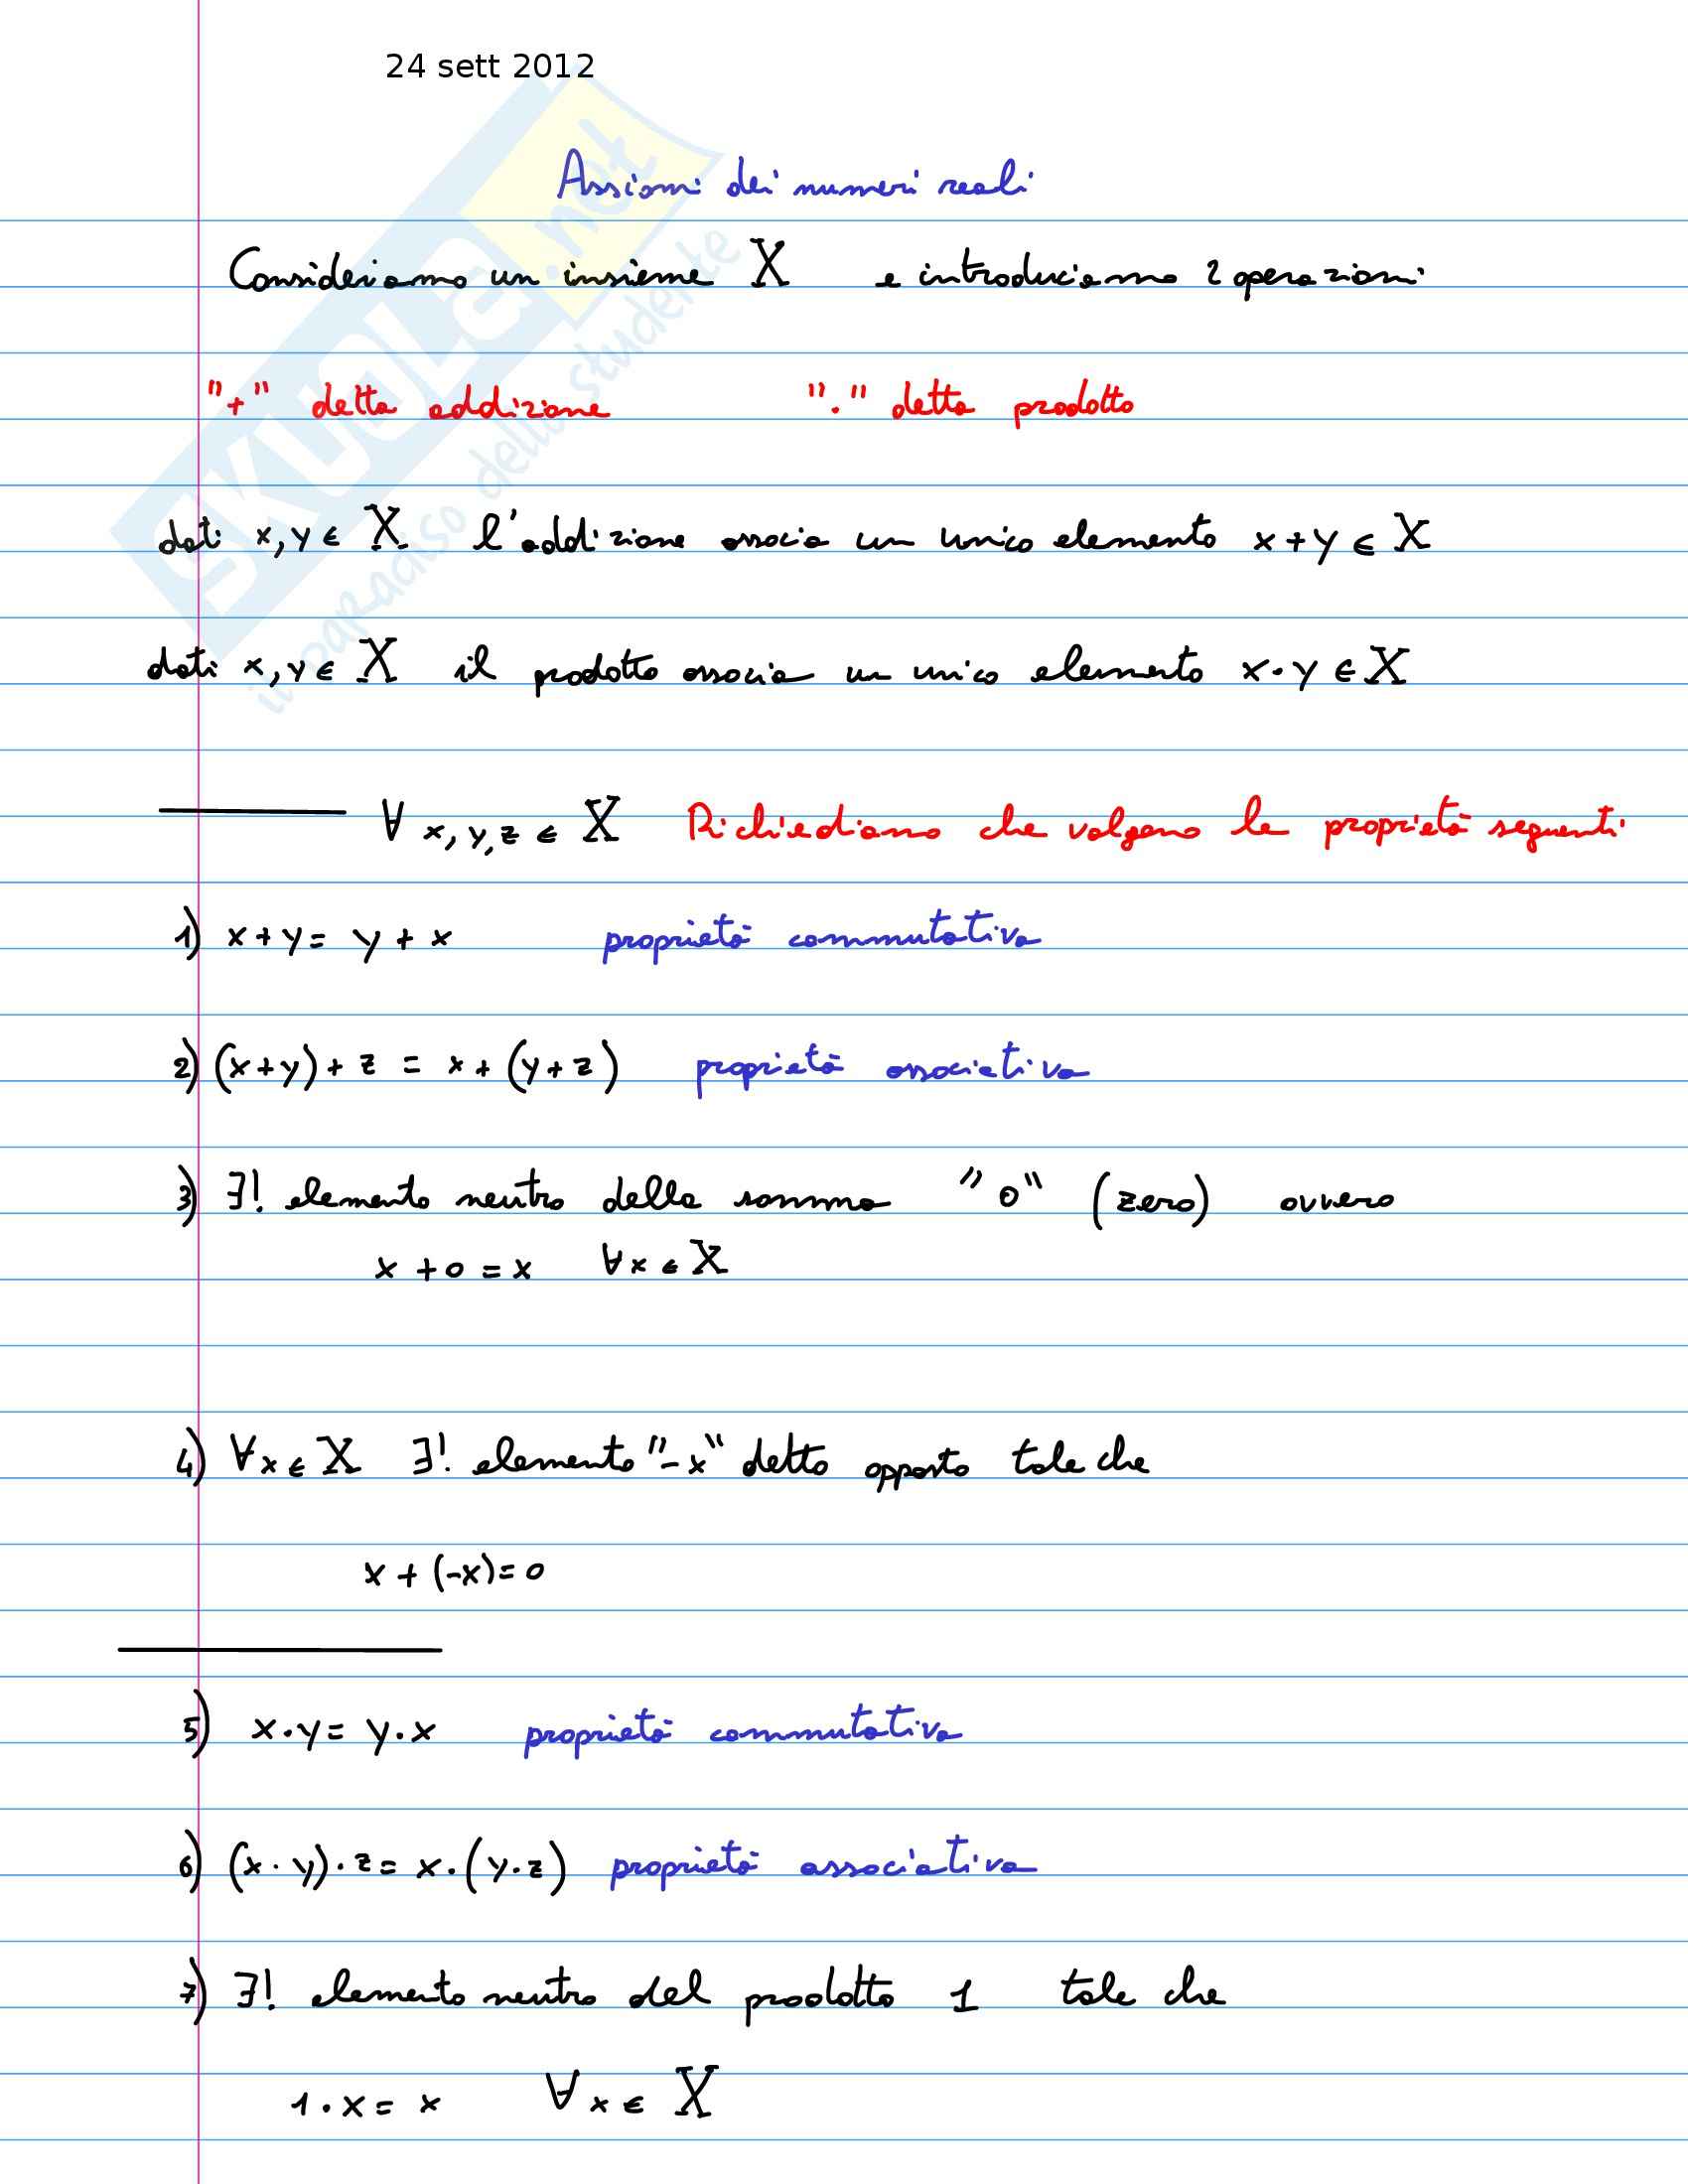 24 sett 2012
Assiomi dei numeri reali
Consideriamo un insieme X e introduciamo 2 operazioni
"+" detta addizione "·" detta prodotto
dati x, y ∈ X l'addizione associa un unico elemento x + y ∈ X
dati x, y ∈ X il prodotto associa un unico elemento x · y ∈ X
∀ x, y, z ∈ X Richiediamo che valgano le proprietà seguenti
1) x + y = y + x proprietà commutativa
2) (x + y) + z = x + (y + z) proprietà associativa
3) ∃! elemento neutro della somma "0" (zero) ovvero
x + 0 = x ∀ x ∈ X
4) ∀ x ∈ X ∃! elemento "-x" detto opposto tale che
x + (-x) = 0
5) x · y = y · x proprietà commutativa
6) (x · y) · z = x · (y · z) proprietà associativa
7) ∃! elemento neutro del prodotto 1 tale che
1 · x = x ∀ x ∈ X
SKUOLA.net
il paradiso dello studente